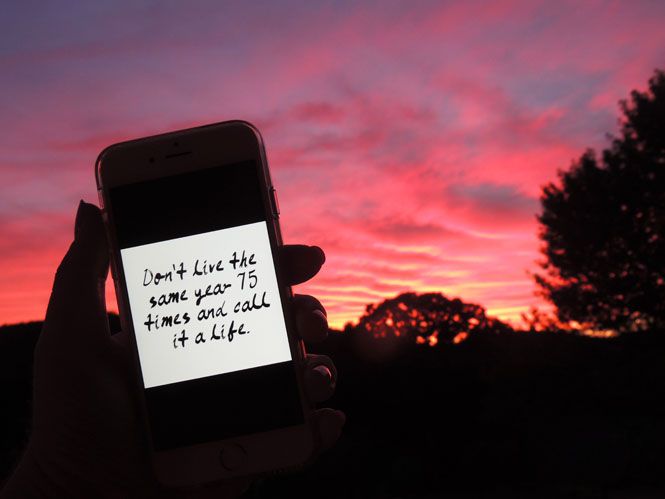 Don't Live the
same year 75
times and call
it a Life.